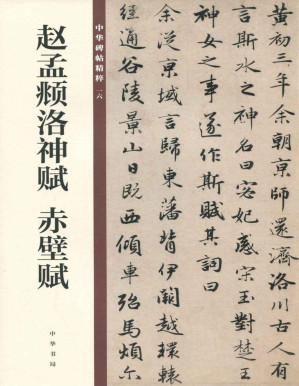 黃初三年余朝京師還濟洛川古人有
言斯水之神名曰宓妃感宋玉對楚王
神女之事遂作斯賦其詞曰
余從京域言歸東藩背伊闕越轘轅
經通谷陵景山日既西傾車殆馬煩尔
中华碑帖精粹 一六
赵孟𫖯洛神赋 赤壁赋
中华书局